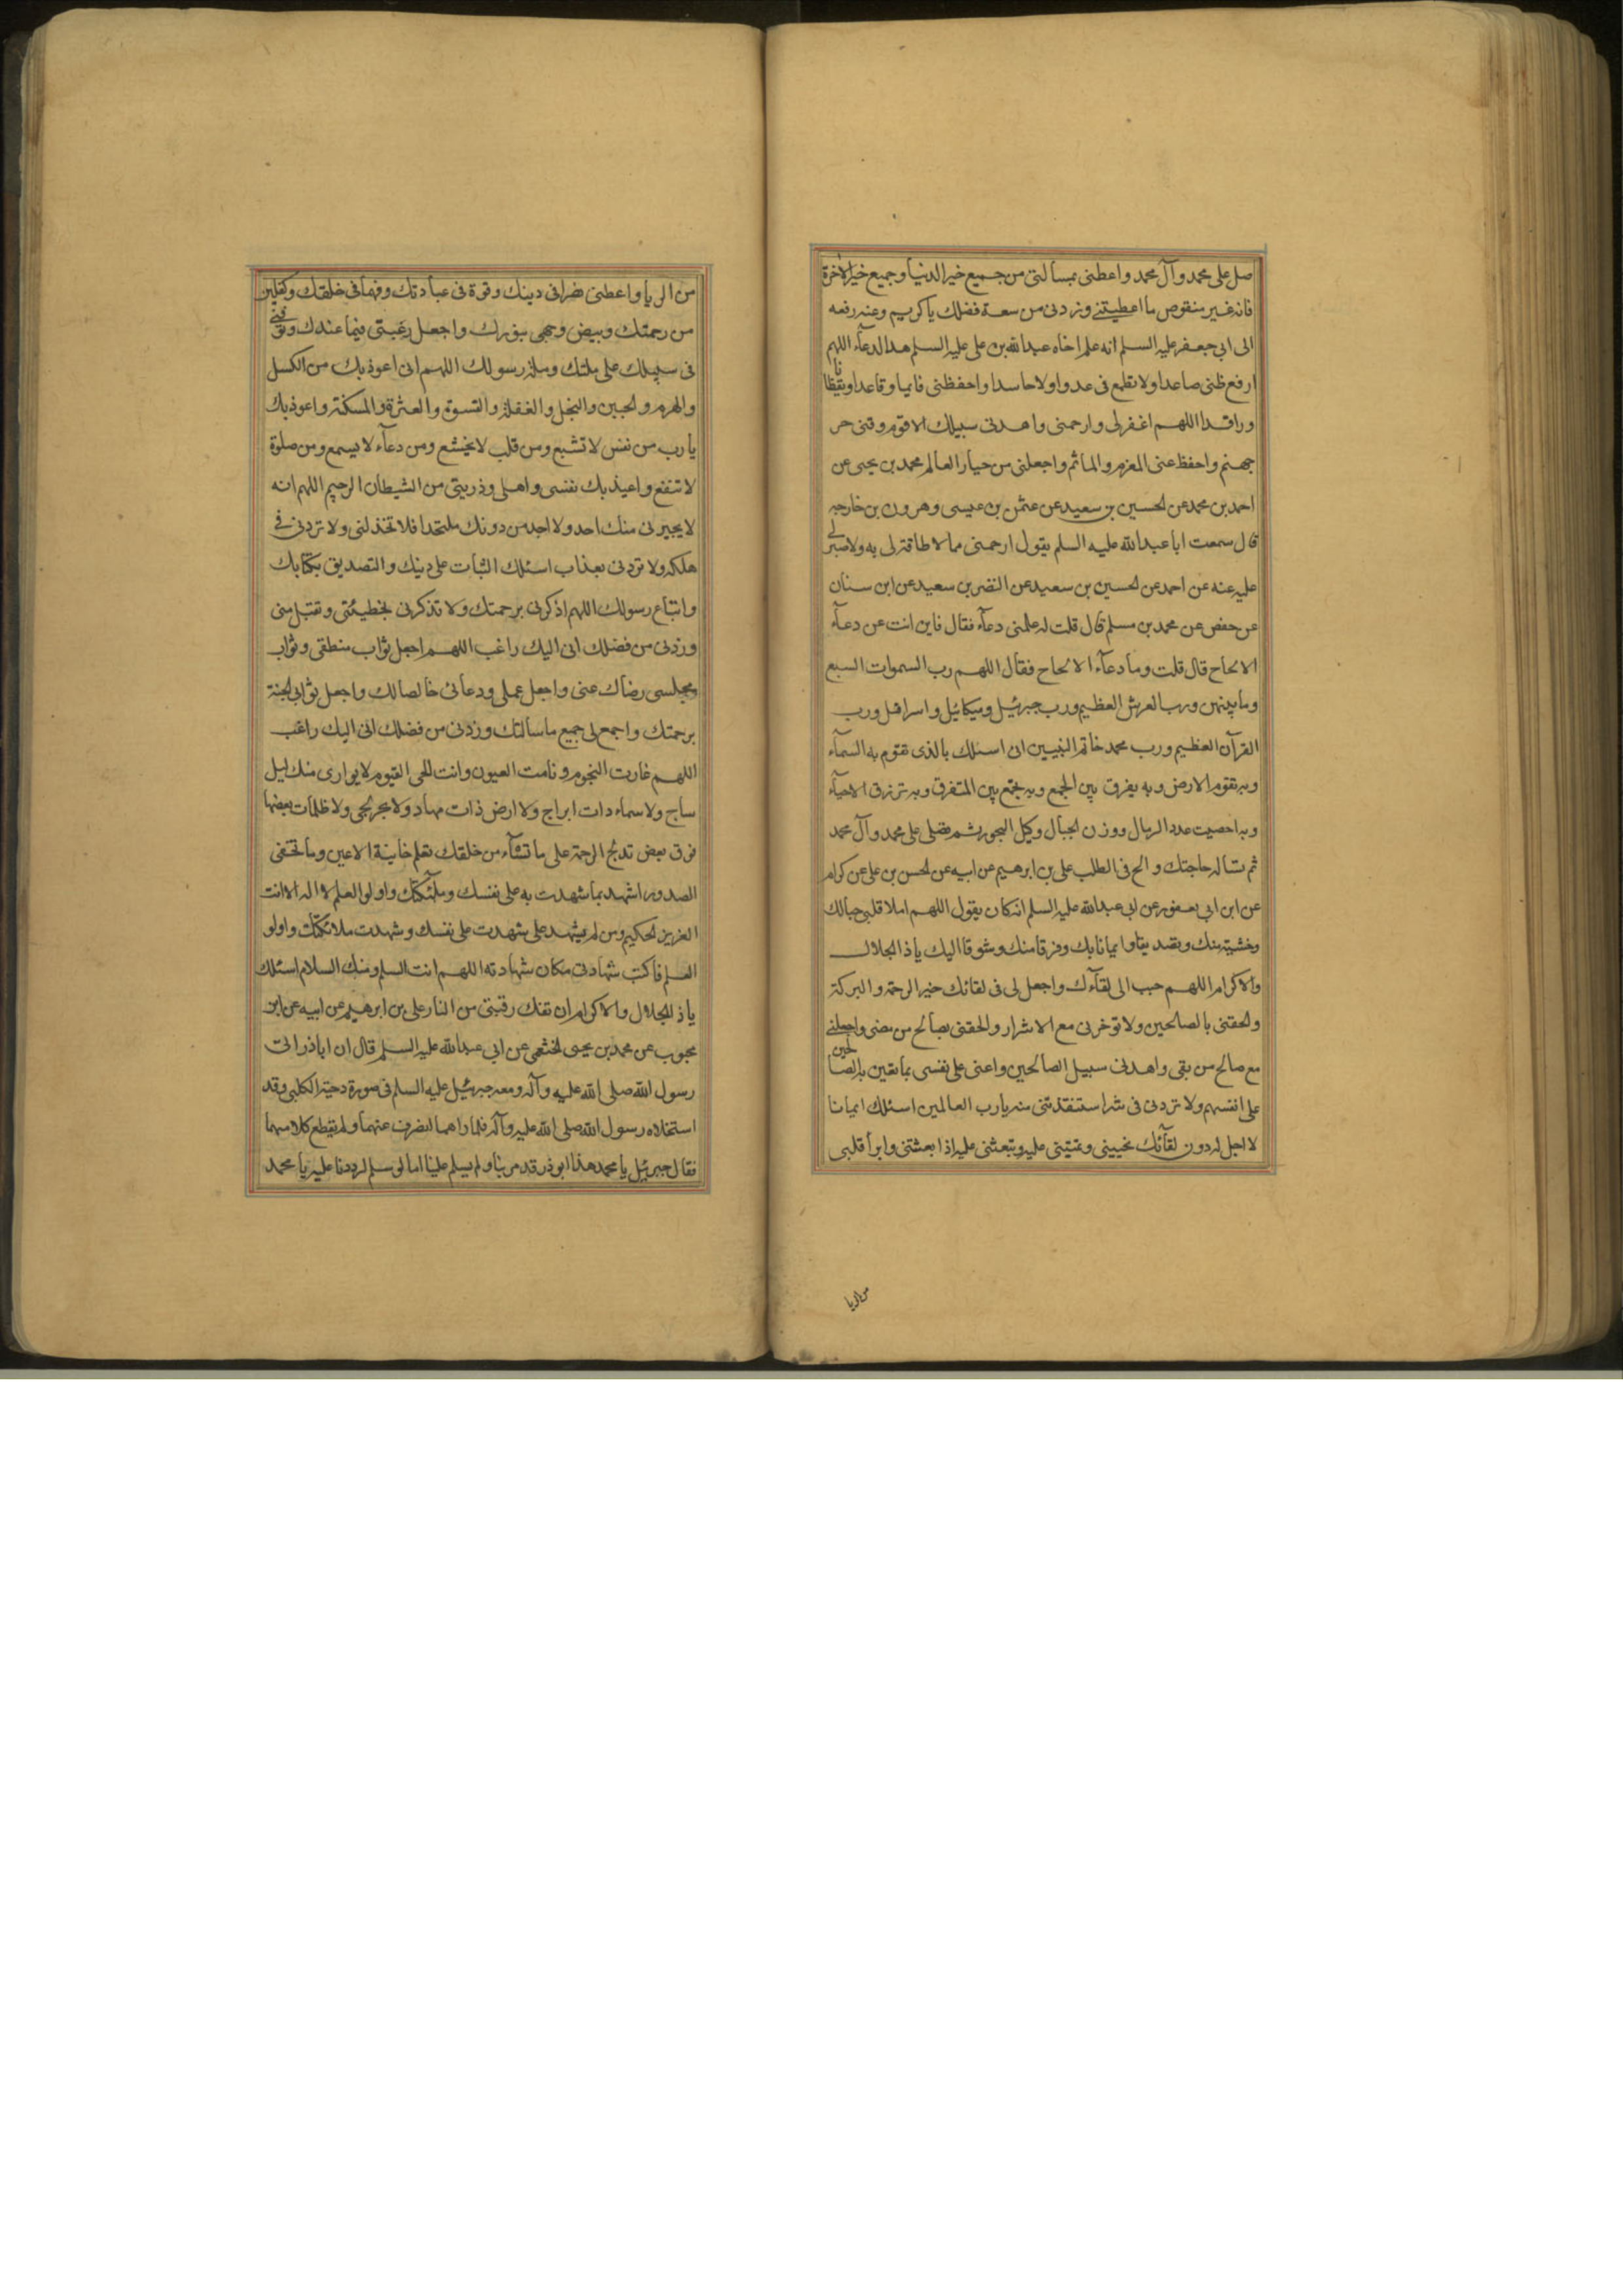 صل على محمد وآل محمد واعطنى بمسألتى من جميع خير الدنيا وجميع خير الآخرة
فانه غير منقوص ما اعطيتنى وزدنى من سعة فضلك يا كريم وعنه رفعه
الى ابى جعفر عليه السلم انه علم اخاه عبد الله بن على عليه السلم هذا الدعآء اللهم
ارفع ظنى صاعدا ولا تطمع فى عدوا ولا حاسدا واحفظنى قايما وقاعدا ويقظانا
وراقدا اللهم اغفر لى وارحمنى واهدنى سبيلك الاقوم وقنى حر
جهنم واحفظ عنى المغرم والماثم واجعلنى من خيار العالم محمد بن يحيى عن
احمد بن محمد عن الحسين بن سعيد عن عثمن بن عيسى وهرون بن خارجه
قال سمعت ابا عبد الله عليه السلم يقول ارحمنى مما لا طاقة لى به ولا صبر لى
عليه عنه عن احمد عن الحسين بن سعيد عن النضر بن سعيد عن ابن سنان
عن حفص عن محمد بن مسلم قال قلت له علمنى دعآء فقال فاين انت عن دعآء
الالحاح قال قلت وما دعآء الالحاح فقال اللهم رب السموات السبع
وما بينهن ورب العرش العظيم ورب جبرئيل وميكائيل واسرافيل ورب
القرآن العظيم ورب محمد خاتم النبيين انى اسئلك بالذى تقوم به السمآء
وبه تقوم الارض وبه يفرق بين الجمع وبه تجمع بين المتفرق وبه ترزق الاحيآء
وبه احصيت عدد الرمال ووزن الجبال وكيل البحور ثم تصلى على محمد وآل محمد
ثم تسأله حاجتك والح فى الطلب على بن ابرهيم عن ابيه عن الحسن بن على عن كرام
عن ابن ابى يعفور عن ابى عبد الله عليه السلم انه كان يقول اللهم املا قلبى حبا لك
وخشية منك وتصديقا وايمانا بك وفرقا منك وشوقا اليك يا ذا الجلال
والاكرام اللهم حبب الى لقآءك واجعل لى فى لقائك خير الرحمة والبركة
والحقنى بالصالحين ولا تؤخرنى مع الاشرار والحقنى بصالح من مضى واجعلنى
مع صالح من بقى واهدنى سبيل الصالحين واعنى على نفسى بما تعين به الصالحين
على انفسهم ولا تردنى فى شر استنقذتنى منه يا رب العالمين اسئلك ايمانا
لا اجل له دون لقآئك تحيينى وتميتنى عليه وتبعثنى عليه اذا بعثتنى وابرأ قلبى
من الريا
من الريا واعطنى نصرا فى دينك وقوة فى عبادتك وفهما فى خلقك وكفلين
من رحمتك وبيض وجهى بنورك واجعل رغبتى فيما عندك وتوفنى
فى سبيلك على ملتك وملة رسولك اللهم انى اعوذ بك من الكسل
والهرم والجبن والبخل والغفلة والقسوة والعثرة والمسكنة واعوذ بك
يا رب من نفس لا تشبع ومن قلب لا يخشع ومن دعآء لا يسمع ومن صلوة
لا تنفع واعيذ بك نفسى واهلى وذريتى من الشيطان الرجيم اللهم انه
لا يجيرنى منك احد ولا اجد من دونك ملتحدا فلا تخذلنى ولا تردنى فى
هلكة ولا تردنى بعذاب اسئلك الثبات على دينك والتصديق بكتابك
واتباع رسولك اللهم اذكرنى برحمتك ولا تذكرنى بخطيئتى وتقبل منى
وزدنى من فضلك انى اليك راغب اللهم اجعل ثواب منطقى وثواب
مجلسى رضاك عنى واجعل عملى ودعائى خالصا لك واجعل ثوابى الجنة
برحمتك واجمع لى جميع ما سألتك وزدنى من فضلك انى اليك راغب
اللهم غارت النجوم ونامت العيون وانت الحى القيوم لا يوارى منك ليل
ساج ولا سماء ذات ابراج ولا ارض ذات مهاد ولا بحر لجى ولا ظلمات بعضها
فوق بعض تدلج الرحمة على ما تشآء من خلقك تعلم خاينة الاعين وما تخفى
الصدور اشهد بما شهدت به على نفسك وملئكتك واولوا العلم لا اله الا انت
العزيز الحكيم ومن لم يشهد على شهدت على نفسك وشهدت ملائكتك واولو
العلم فاكتب شهادتى مكان شهادته اللهم انت السلم ومنك السلام اسئلك
يا ذا الجلال والاكرام ان تفك رقبتى من النار على بن ابرهيم عن ابيه عن ابن
محبوب عن محمد بن يحيى الخثعمى عن ابى عبد الله عليه السلم قال ان اباذر اتى
رسول الله صلى الله عليه وآله ومعه جبرئيل عليه السلم فى صورة دحية الكلبى وقد
استخلاه رسول الله صلى الله عليه وآله فلما راهما انصرف عنهما ولم يقطع كلامهما
فقال جبرئيل يا محمد هذا ابوذر قد مر بنا ولم يسلم علينا اما لو سلم لرددنا عليه يا محمد